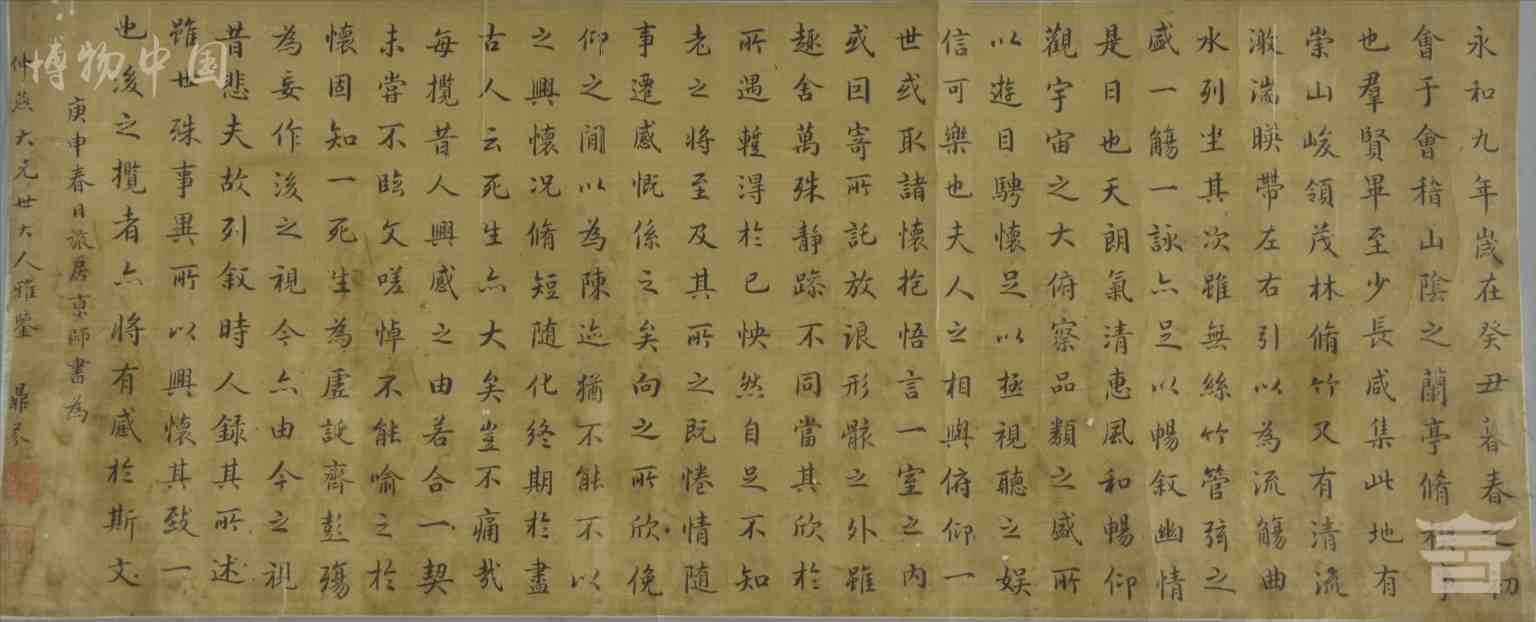 永和九年歲在癸丑暮春之初
會于會稽山陰之蘭亭脩稧事
也羣賢畢至少長咸集此地有
崇山峻領茂林脩竹又有清流
激湍暎帶左右引以為流觴曲
水列坐其次雖無絲竹管弦之
盛一觴一詠亦足以暢叙幽情
是日也天朗氣清惠風和暢仰
觀宇宙之大俯察品類之盛所
以遊目騁懷足以極視聽之娛
信可樂也夫人之相與俯仰一
世或取諸懷抱悟言一室之內
或因寄所託放浪形骸之外雖
趣舍萬殊静躁不同當其欣於
所遇蹔得於己怏然自足不知
老之將至及其所之既惓情隨
事遷感慨係之矣向之所欣俛
仰之間以為陳迹猶不能不以
之興懷况脩短隨化終期於盡
古人云死生亦大矣豈不痛哉
每攬昔人興感之由若合一契
未嘗不臨文嗟悼不能喻之於
懷固知一死生為虛誕齊彭殤
為妄作後之視今亦由今之視
昔悲夫故列叙時人錄其所述
雖世殊事異所以興懷其致一
也後之攬者亦將有感於斯文
庚申春日旅居京師書為
仲燕大兄世大人雅鑒
博物中国